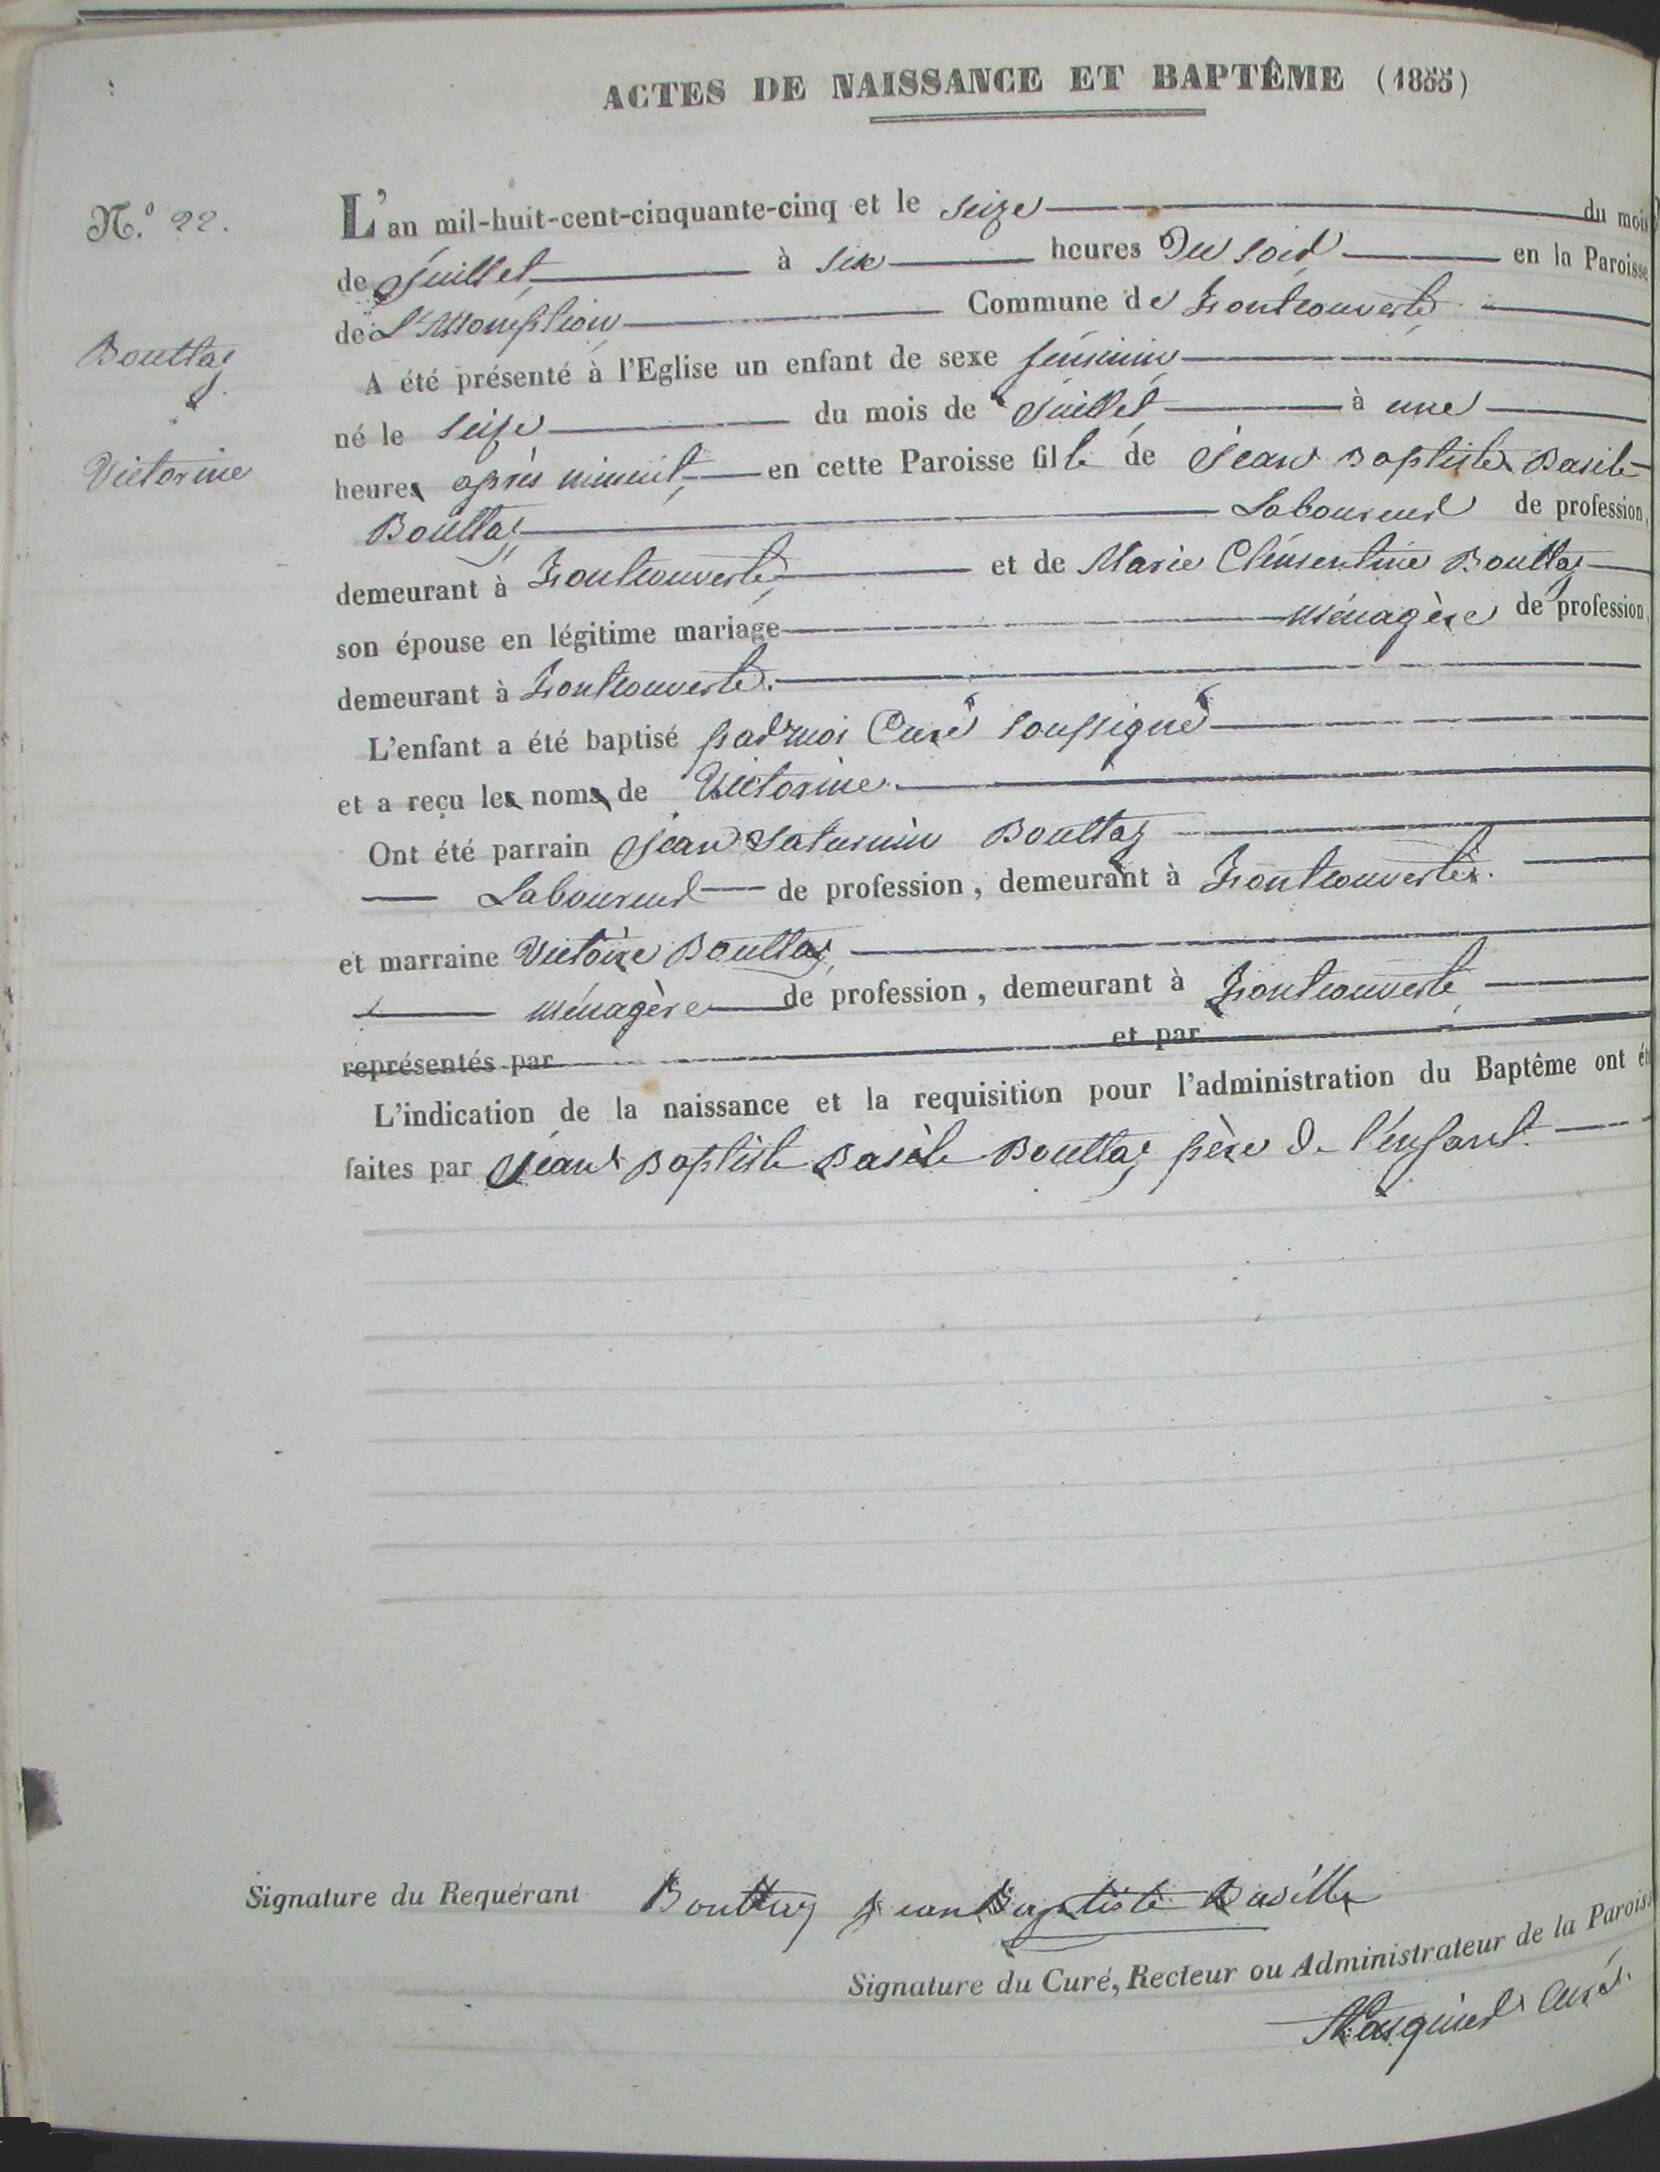 ACTES DE NAISSANCE ET BAPTÊME (1855)
N.º 22.
L'an mil-huit-cent-cinquante-cinq et le seize du mois
de Juillet à six heures du soir en la Paroisse
de L'Assomption Commune de Fontcouverte
Bouttaz
A été présenté à l'Eglise un enfant de sexe féminin
né le seize du mois de Juillet à une
Victorine
heures après minuit, en cette Paroisse fille de Jean Baptiste Basile
Bouttaz Laboureur de profession,
demeurant à Fontcouverte et de Marie Clémentine Bouttaz
son épouse en légitime mariage ménagère de profession,
demeurant à Fontcouverte.
L'enfant a été baptisé par moi Curé soussigné
et a reçu les noms de Victorine.
Ont été parrain Jean Saturnin Bouttaz
Laboureur de profession, demeurant à Fontcouverte.
et marraine Victoire Bouttaz,
ménagère de profession, demeurant à Fontcouverte
représentés par et par
L'indication de la naissance et la requisition pour l'administration du Baptême ont été
faites par Jean Baptiste Basile Bouttaz père de l'enfant.
Signature du Requérant Bouttaz Jean Baptiste Basille
Signature du Curé, Recteur ou Administrateur de la Paroiss
Curé.